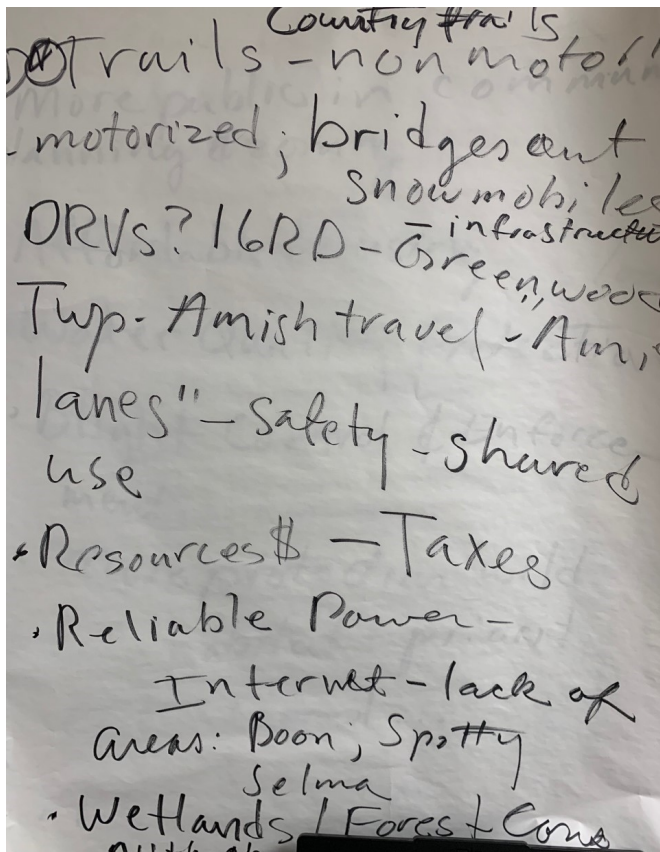 Country trails
Trails - non motor
- motorized; bridges out
snowmobiles
ORVs? 16RD - - infrastructu
Greenwood
Twp. - Amish travel - "Ami
lanes" - Safety - shared
use
• Resources $ - Taxes
• Reliable Power -
Internet - lack of
areas: Boon; Spotty
Selma
• Wetlands / Forest Cons